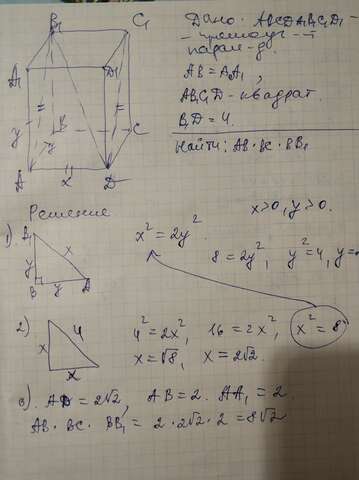 B₁ C₁
A₁ D₁
y B C
y
A x D
Дано: ABCDA₁B₁C₁D₁ -
- прямоуг-й
парал-д.
AB = AA₁,
AB₁C₁D - квадрат.
B₁D = 4.
Найти: AB · BC · BB₁
Решение
x>0, y>0.
1) B₁ y x B y A
x² = 2y²
8 = 2y², y² = 4, y =
2) x 4 x
4² = 2x², 16 = 2x², x² = 8
x = √8, x = 2√2.
3). AD = 2√2, AB = 2. AA₁ = 2.
AB · BC · BB₁ = 2 · 2√2 · 2 = 8√2